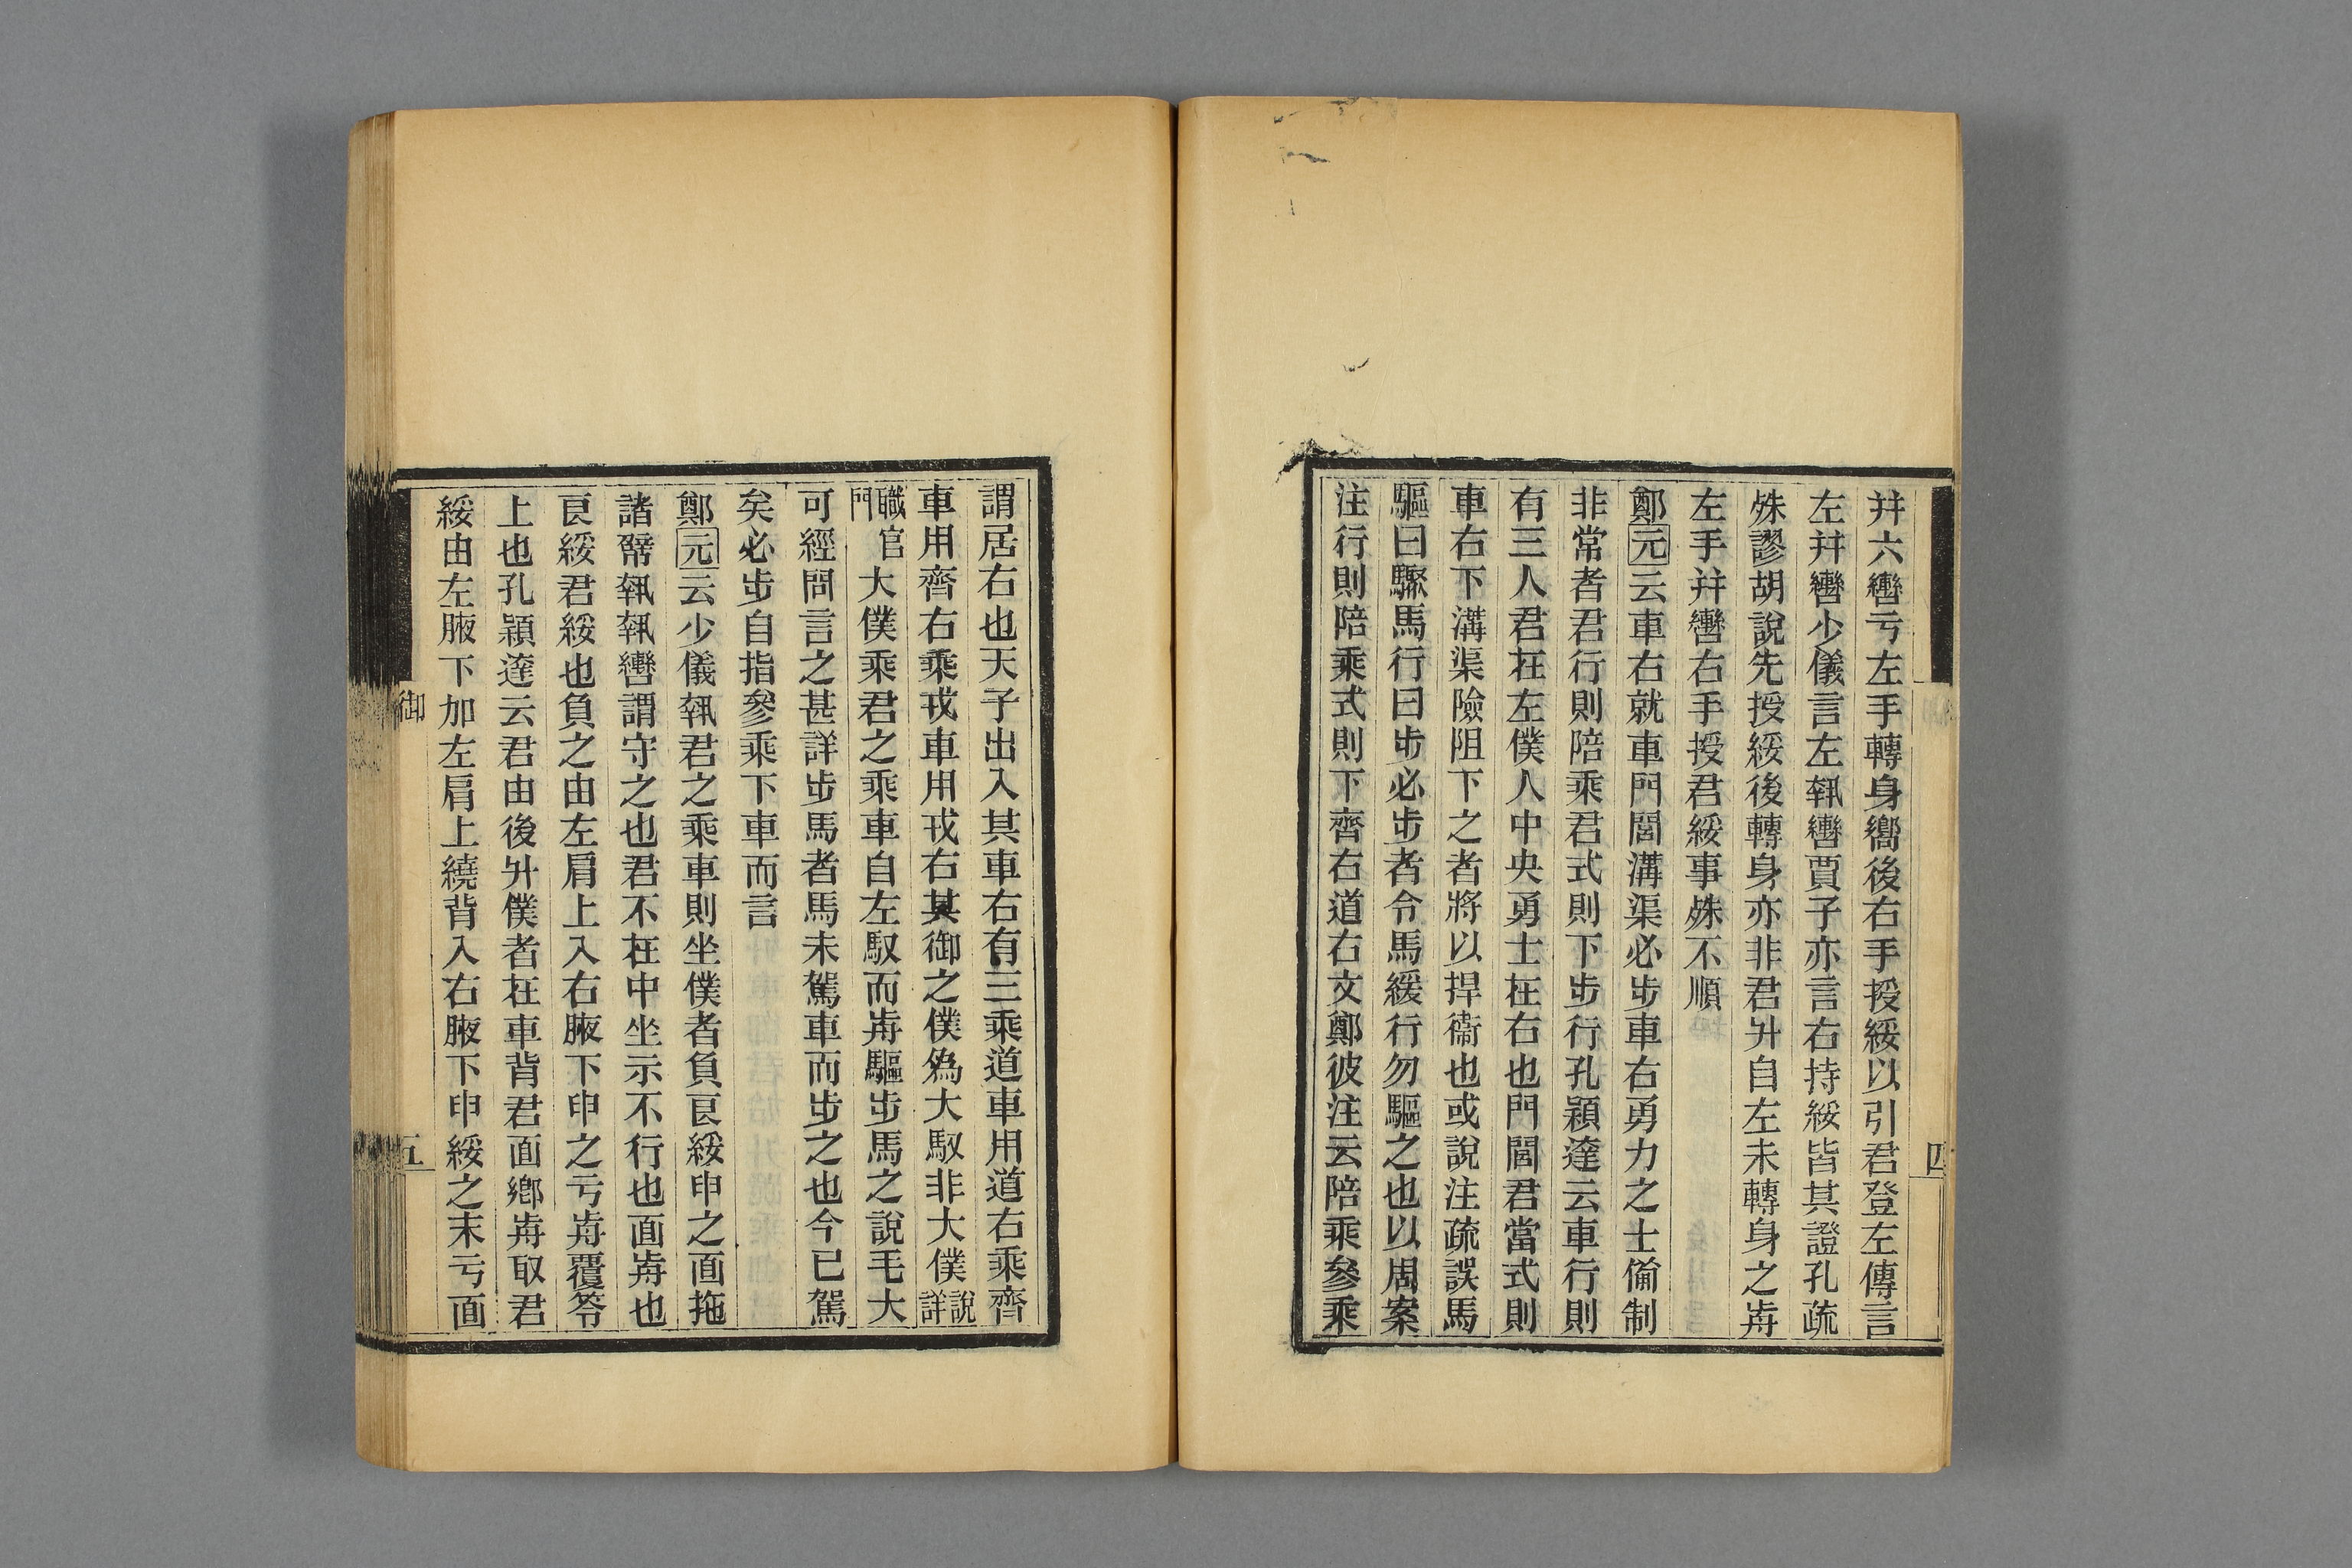 幷六轡亏左手轉身嚮後右手授綏以引君登左傳言
左幷轡少儀言左𡙕轡賈子亦言右持綏皆其證孔疏
殊謬胡說先授綏後轉身亦非君升自左未轉身之歬
左手幷轡右手授君綏事殊不順
鄭元云車右就車門閭溝渠必步車右勇力之士僃制
非常者君行則陪乘君式則下步行孔穎達云車行則
有三人君在左僕人中央勇士在右也門閭君當式則
車右下溝渠險阻下之者將以捍衞也或說注疏誤馬
驅曰驟馬行曰步必步者令馬緩行勿驅之也以周案
注行則陪乘式則下齊右道右文鄭彼注云陪乘參乘
四
謂居右也天子出入其車右有三乘道車用道右乘齊
車用齊右乘戎車用戎右其御之僕爲大馭非大僕說詳
職官門大僕乘君之乘車自左馭而歬驅步馬之說毛大
可經問言之甚詳步馬者馬未駕車而步之也今已駕
矣必步自指參乘下車而言
鄭元云少儀𡙕君之乘車則坐僕者負良綏申之面拖
諸幦𡙕𡙕轡謂守之也君不在中坐示不行也面歬也
良綏君綏也負之由左肩上入右腋下申之亏歬覆笭
上也孔穎達云君由後升僕者在車背君面鄉歬取君
綏由左腋下加左肩上繞背入右腋下申綏之末亏面
御
五